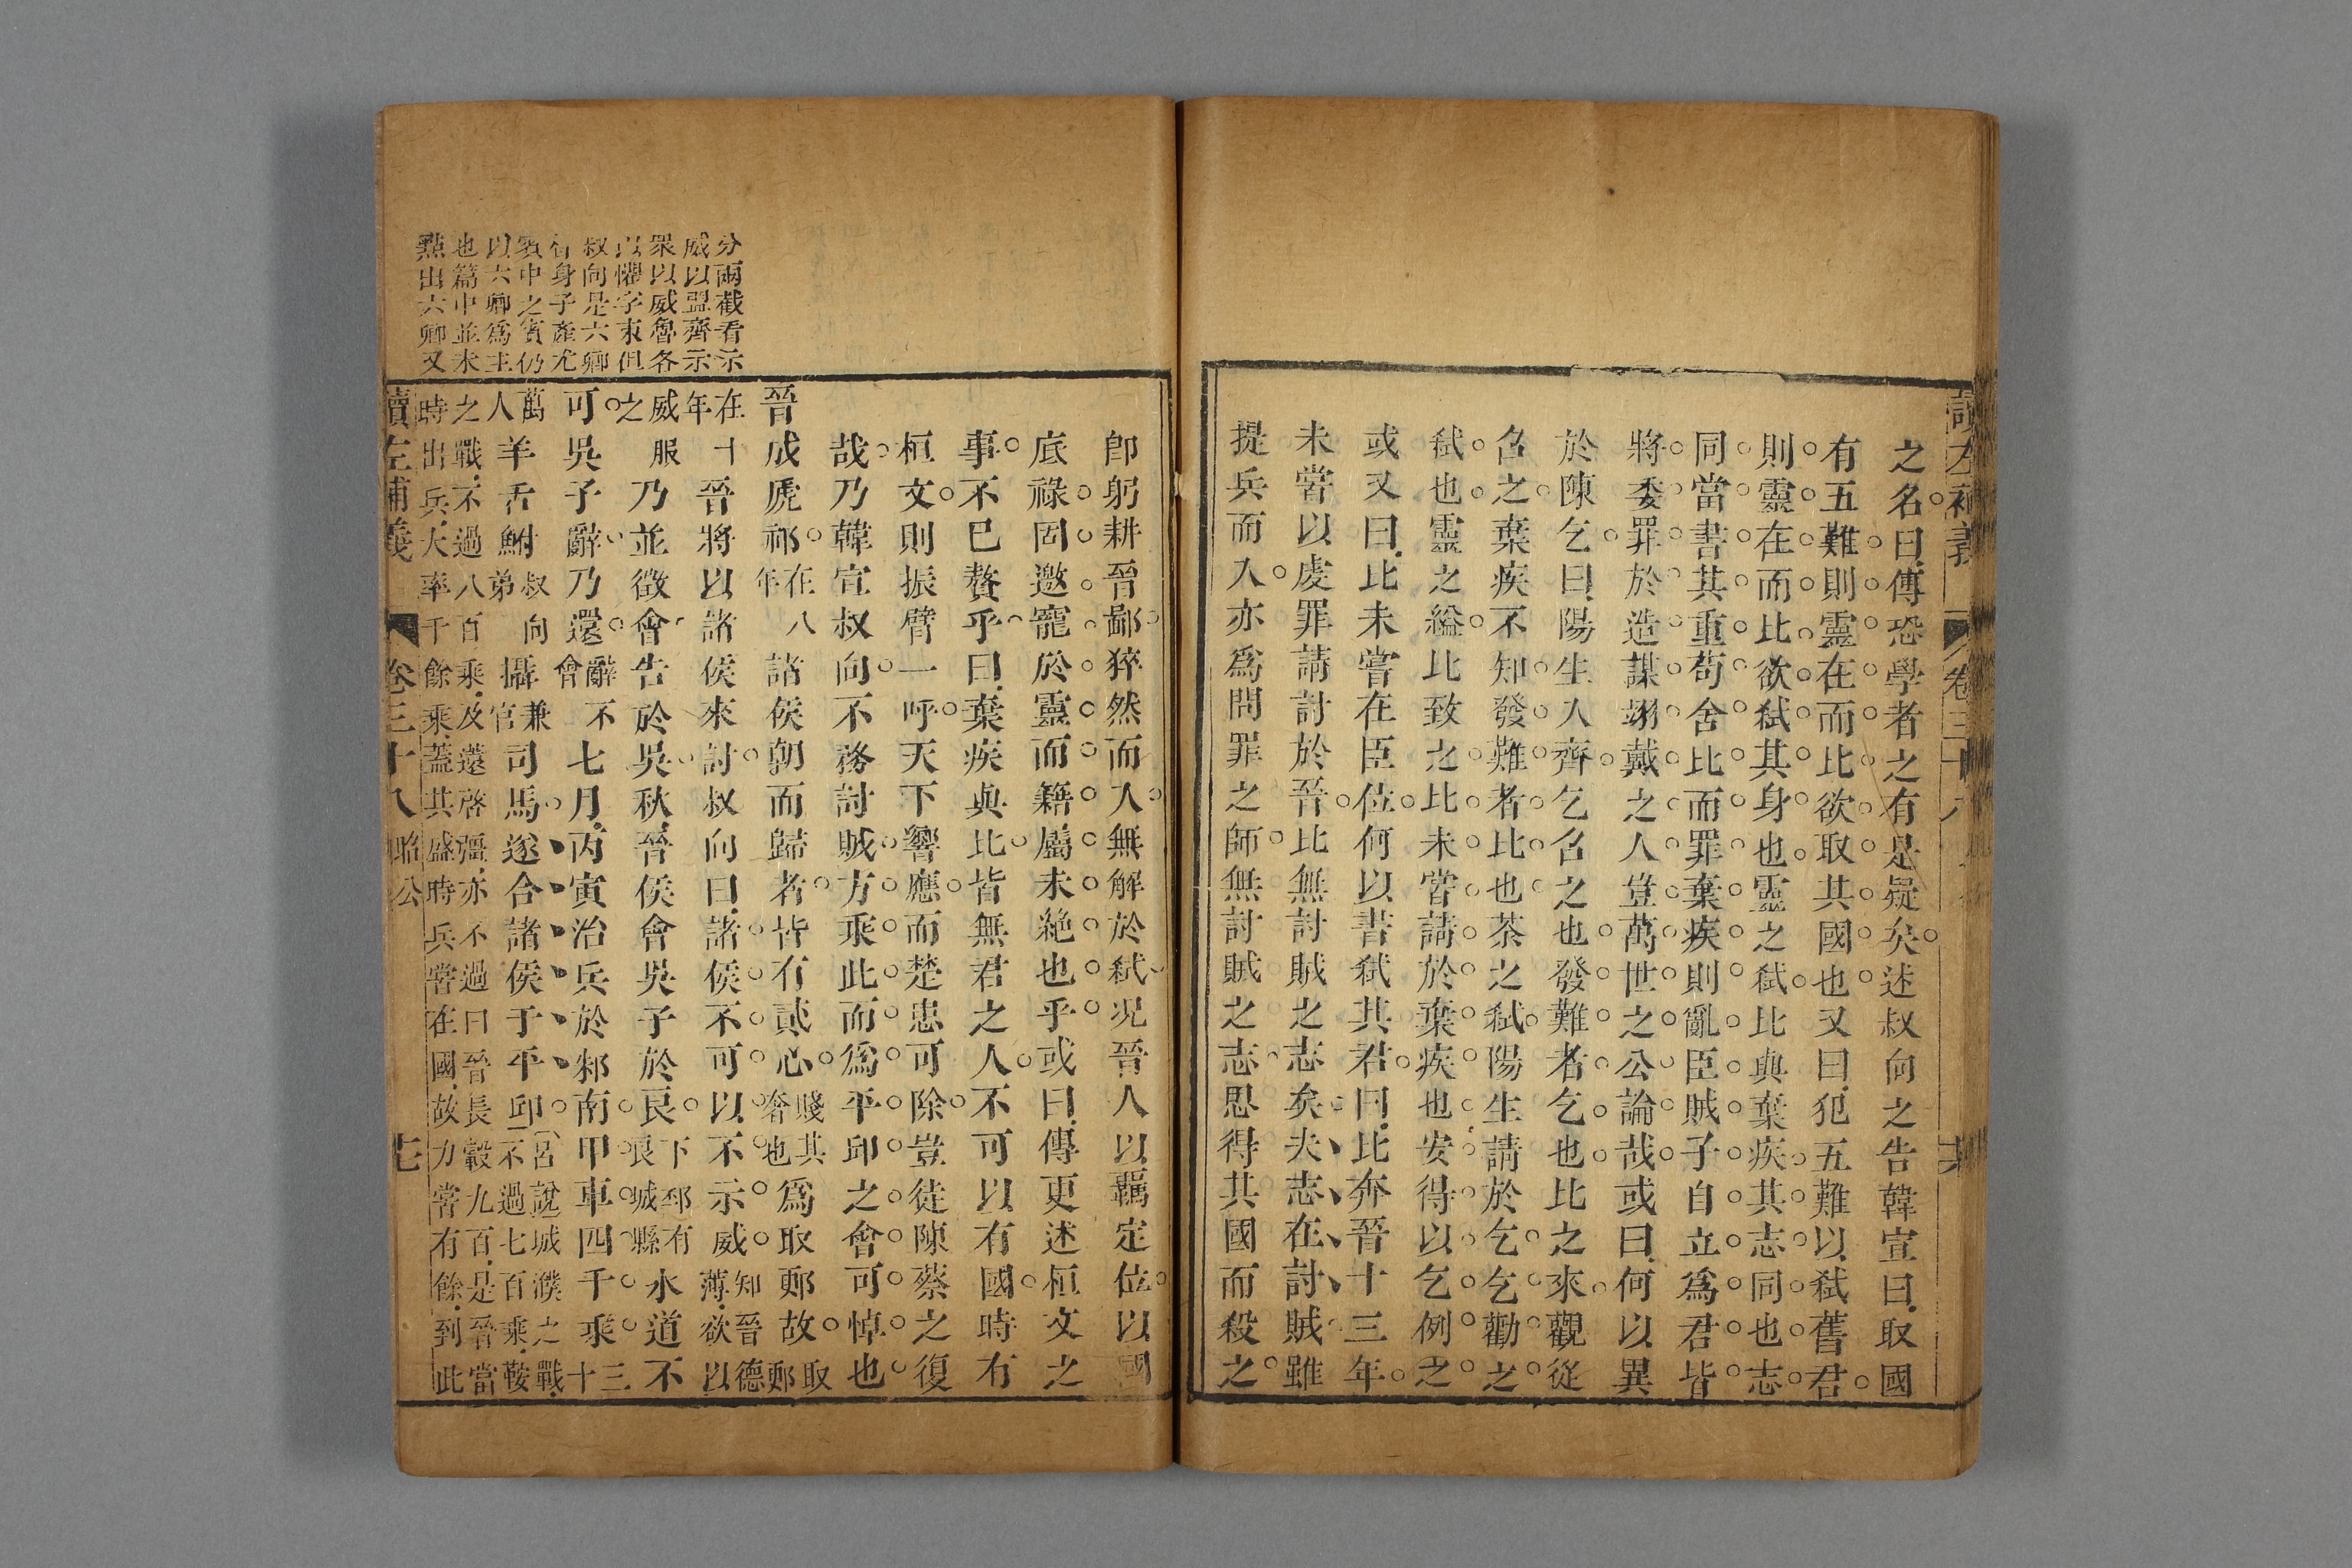 讀左補義 卷三十八 
之名曰傳恐學者之有是疑矣述叔向之告韓宣曰取國
有五難則靈在而比欲取其國也又曰犯五難以弒舊君
則靈在而比欲弒其身也靈之弒比與棄疾其志同也志
同當書其重苟舍比而罪棄疾則亂臣賊子自立爲君皆
將委罪於造謀翊戴之人豈萬世之公論哉或曰何以異
於陳乞曰陽生入齊乞召之也發難者乞也比之來觀從
召之棄疾不知發難者比也荼之弒陽生請於乞乞勸之
弒也靈之縊比致之比未嘗請於棄疾也安得以乞例之
或又曰比未嘗在臣位何以書弒其君曰比奔晉十三年
未嘗以虔罪請討於晉比無討賊之志矣夫志在討賊雖
提兵而入亦爲問罪之師無討賊之志思得其國而殺之
卽躬耕晉鄙猝然而入無解於弒况晉人以羈定位以國
底祿固邀寵於靈而籍屬未絶也乎或曰傳更述桓文之
事不已贅乎曰棄疾與比皆無君之人不可以有國時有
桓文則振臂一呼天下響應而楚患可除豈徒陳蔡之復
哉乃韓宣叔向不務討賊方乘此而爲平邱之會可悼也
晉成虒祁在八年諸侯朝而歸者皆有貳心賤其奢也爲取郠故取郠
在十年晉將以諸侯來討叔向曰諸侯不可以不示威知晉德薄欲以
威服之乃並徵會告於吳秋晉侯會吳子於良下邳有良城縣水道不
可吳子辭乃還辭不會七月丙寅治兵於邾南甲車四千乘三十
萬人羊舌鮒叔向弟攝兼官司馬遂合諸侯于平邱呂說城濮之戰
不過七百乘鞍
之戰不過八百乘及薳啓彊亦不過曰晉長轂九百是晉當
時出兵大率千餘乘蓋其盛時兵嘗在國故力嘗有餘到此
讀左補義 卷三十八 昭公 七
分兩截看示
威以盟齊示
衆以威魯各
以懼字束但
叔向是六卿
替身子產尤
類中之賓仍
以六卿爲主
也篇中並未
點出六卿又